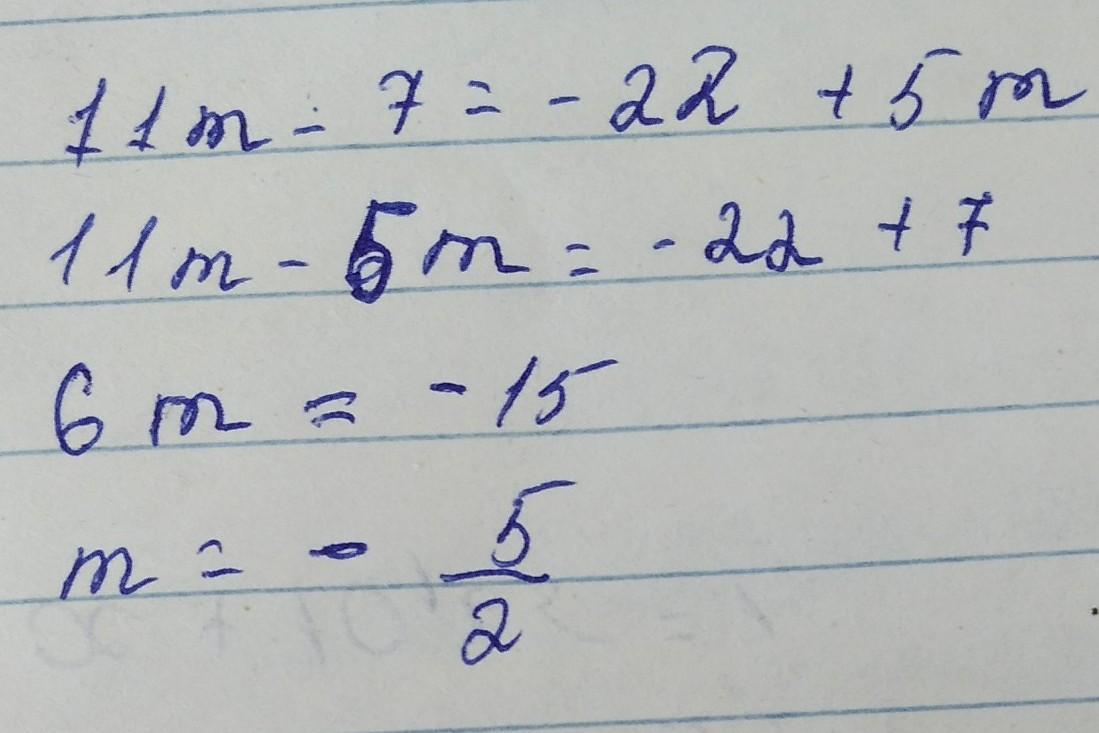 11m - 7 = - 22 + 5m
11m - 5m = - 22 + 7
6m = - 15
m = - 5/2